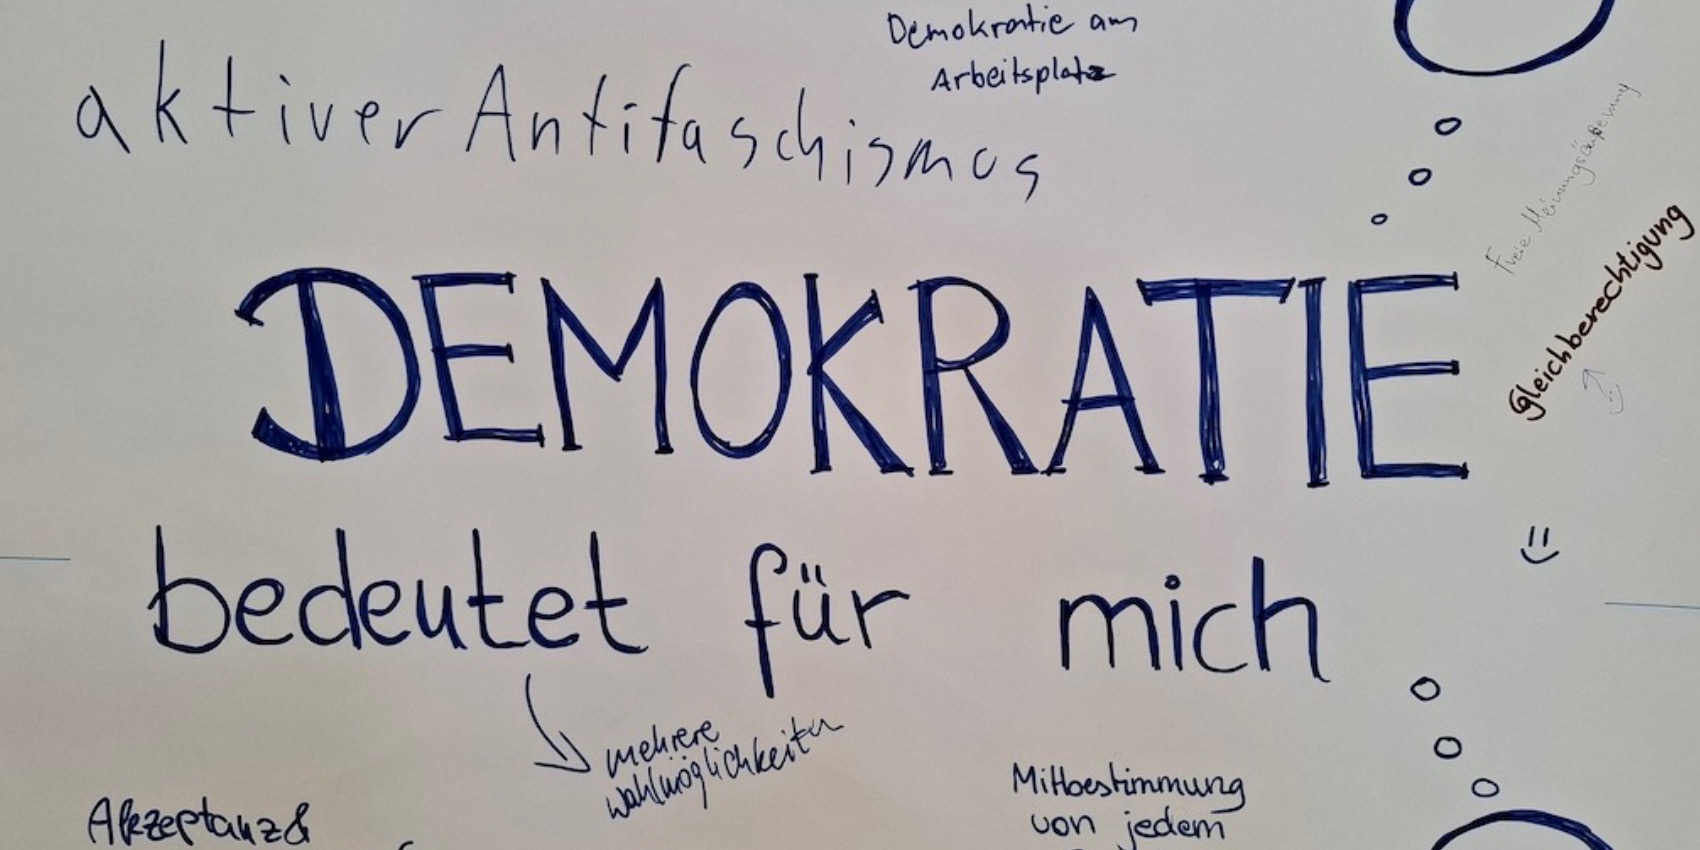 Demokratie am
Arbeitsplatz
aktiver Antifaschismus
Freie Meinungsäußerung
Gleichberechtigung
DEMOKRATIE
bedeutet für mich
mehrere
wahlmöglichkeiten
Mitbestimmung
von jedem
Akzeptanz &